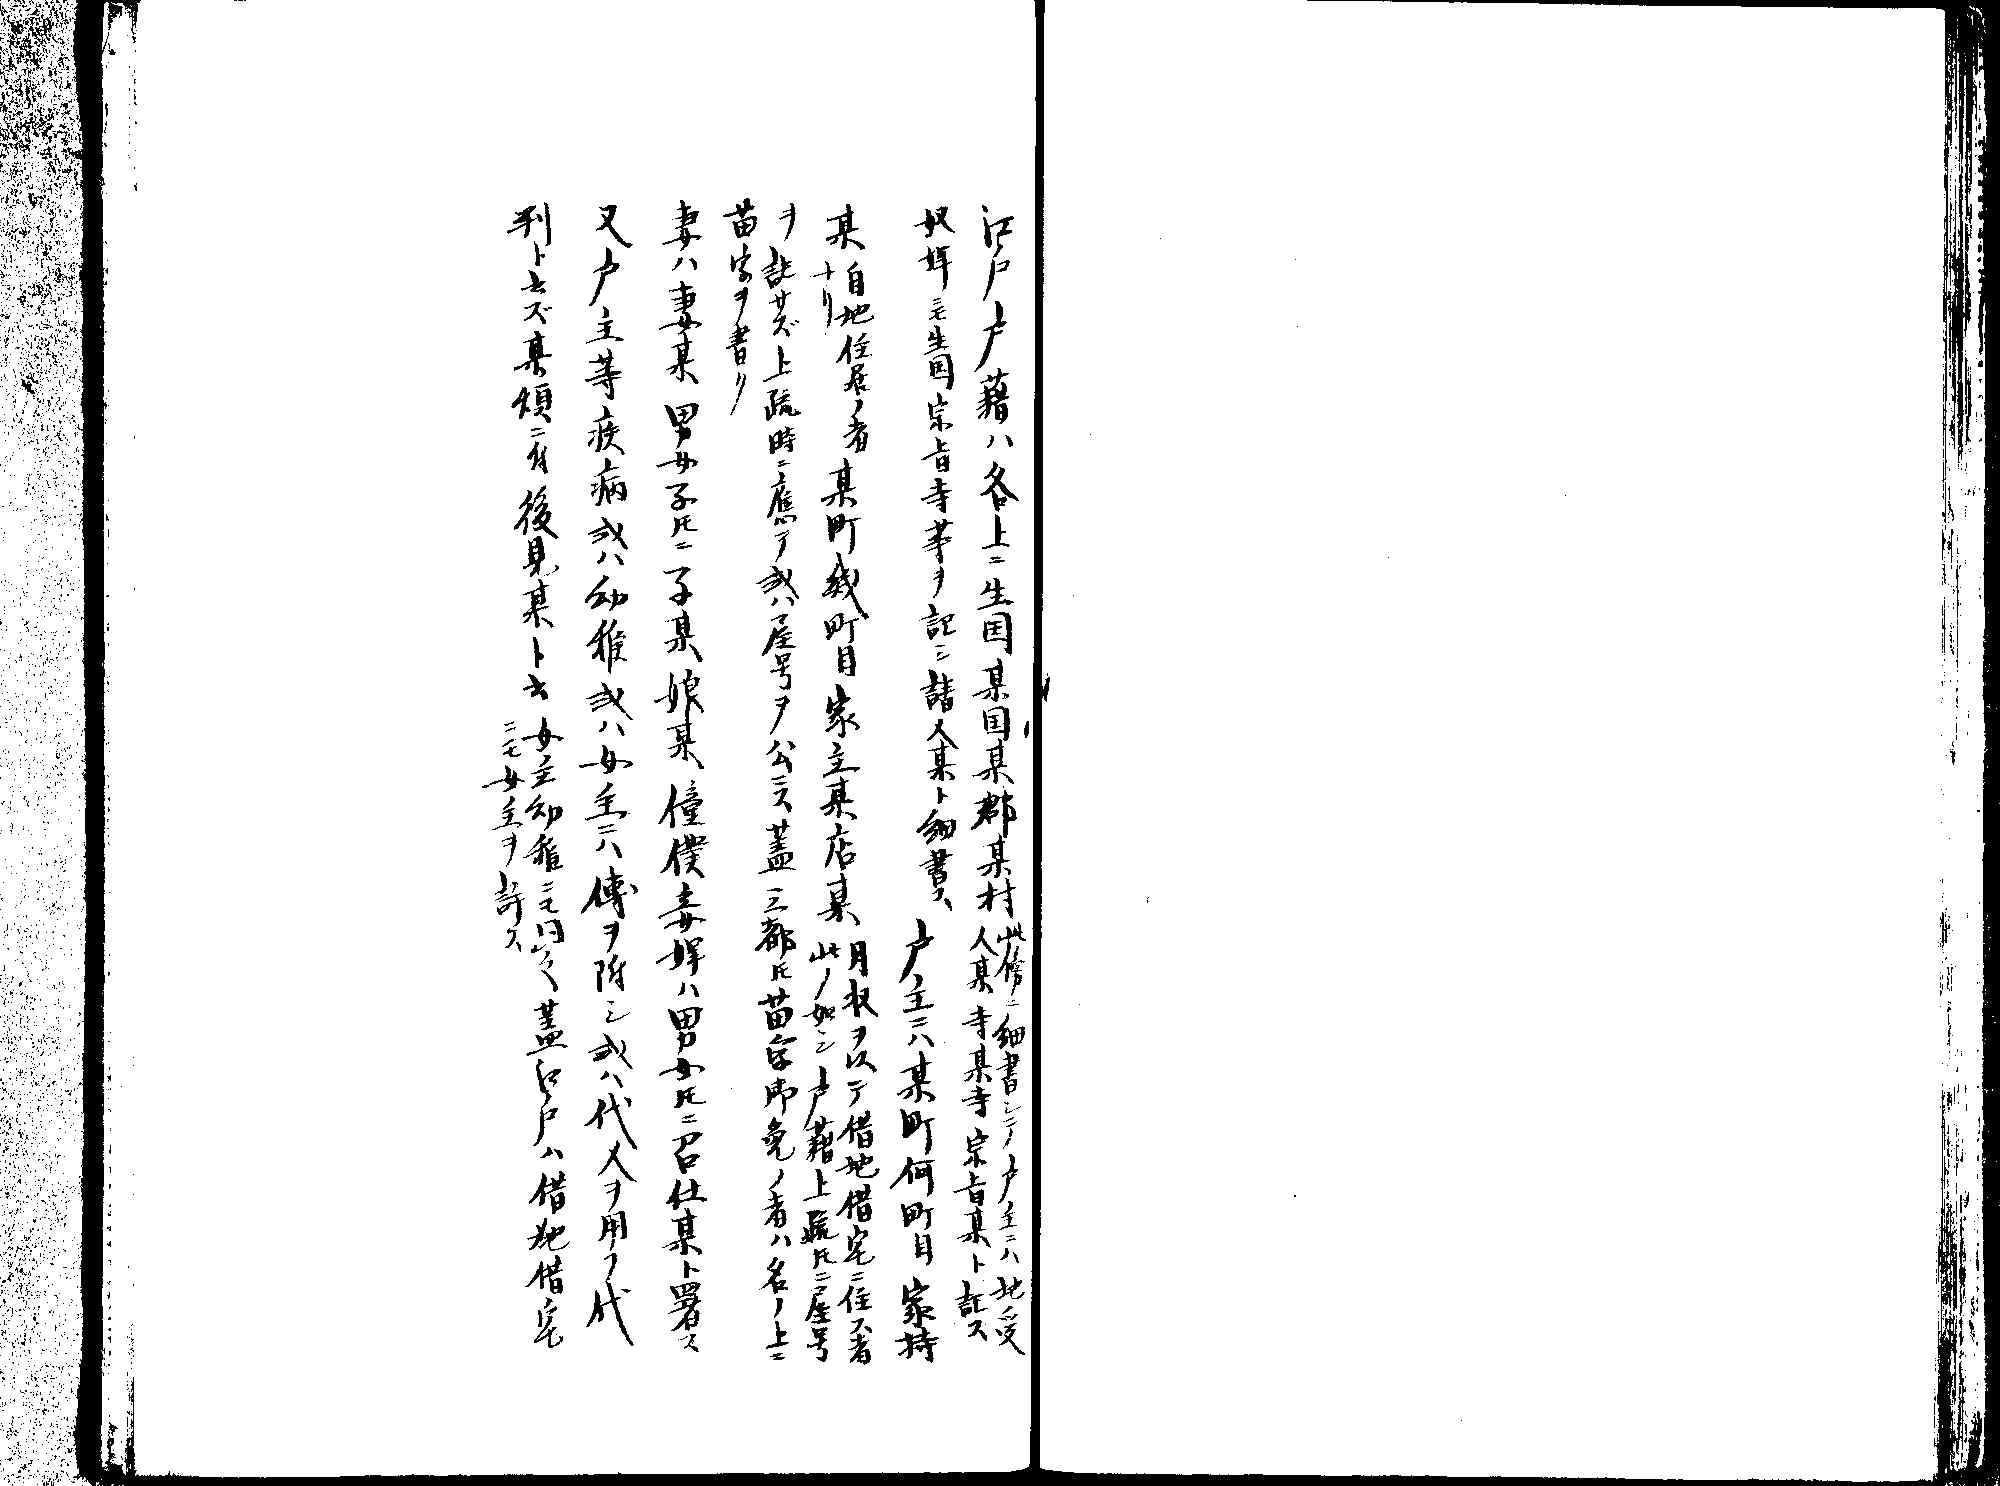 江戸戸籍ハ各上ニ生国某国某郡某村
此傍ニ細書シテ戸主ニハ地受
人某寺某寺宗旨某ト記ス
奴婢ニモ生国宗旨寺等ヲ記シ請人某ト細書ス、戸主ニハ某町何町目家持
某
自地住居ノ者
ナリ
某町幾町目家主某店某、
月収ヲ以テ借地借宅ニ住ス者
此ノ如シ戸籍上疏圧ニ屋号
ヲ記サズ上疏時ニ應テ或ハ屋号ヲ公ニス蓋三都圧苗字御免ノ者ハ名ノ上ニ
苗字ヲ書ケリ
妻ハ妻某、男女子圧ニ子某、娘某、僮僕妾婢ハ男女圧ニ召仕某ト署ス
又戸主等疾病或ハ幼稚或ハ女主ニハ傳ヲ附シ或ハ代人ヲ用フ代
判ト云ズ某煩ニ付後見某ト云
女主幼稚ニモ同之蓋江戸ハ借地借宅
ニモ女主ヲ許ス